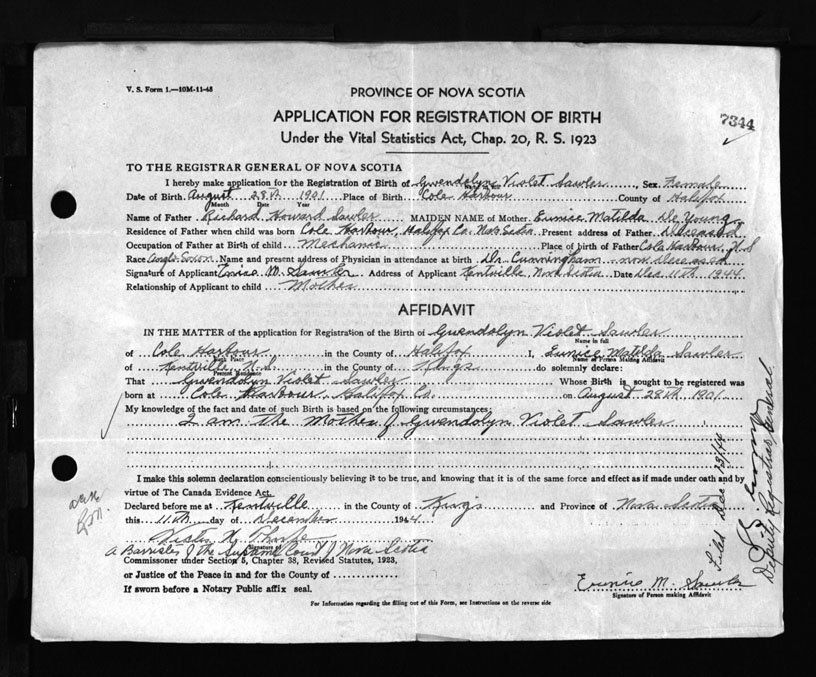 V. S. Form 1.—10M-11-43
PROVINCE OF NOVA SCOTIA
APPLICATION FOR REGISTRATION OF BIRTH
7344
Under the Vital Statistics Act, Chap. 20, R. S. 1923
TO THE REGISTRAR GENERAL OF NOVA SCOTIA
I hereby make application for the Registration of Birth of Gwendolyn Violet Sawler, Sex Female
Name in full
Date of Birth August 28th 1901 Place of Birth Cole Harbour County of Halifax
Month Date Year
Name of Father Richard Howard Sawler MAIDEN NAME of Mother Eunice Matilda De Young
Residence of Father when child was born Cole Harbour, Halifax Co. Nova Scotia Present address of Father Deceased
Occupation of Father at Birth of child Mechanic Place of birth of Father Cole Harbour, N S
Race Anglo-Saxon Name and present address of Physician in attendance at birth Dr. Cunningham - now Deceased
Signature of Applicant Eunice M. Sawler Address of Applicant Kentville, Nova Scotia Date Dec 11th 1944
Relationship of Applicant to child Mother
AFFIDAVIT
IN THE MATTER of the application for Registration of the Birth of Gwendolyn Violet Sawler
Name in full
of Cole Harbour in the County of Halifax I, Eunice Matilda Sawler
Birth Place Name of Person Making Affidavit
of Kentville, N. S. in the County of Kings do solemnly declare:
Present Residence
That Gwendolyn Violet Sawler Whose Birth is sought to be registered was
born at Cole Harbour, Halifax Co. on August 28th 1901
My knowledge of the fact and date of such Birth is based on the following circumstances:
I am the Mother of Gwendolyn Violet Sawler
I make this solemn declaration conscientiously believing it to be true, and knowing that it is of the same force and effect as if made under oath and by
virtue of The Canada Evidence Act.
Declared before me at Kentville in the County of Kings and Province of Nova Scotia
this 11th day of December 1944
Signature of
A Barrister of the Supreme Court of Nova Scotia
Commissioner under Section 5, Chapter 38, Revised Statutes, 1923,
or Justice of the Peace in and for the County of
If sworn before a Notary Public affix seal.
Eunice M. Sawler
Signature of Person making Affidavit
For Information regarding the filling out of this Form, see Instructions on the reverse side
Filed Dec 13/44
Deputy Registrar General.